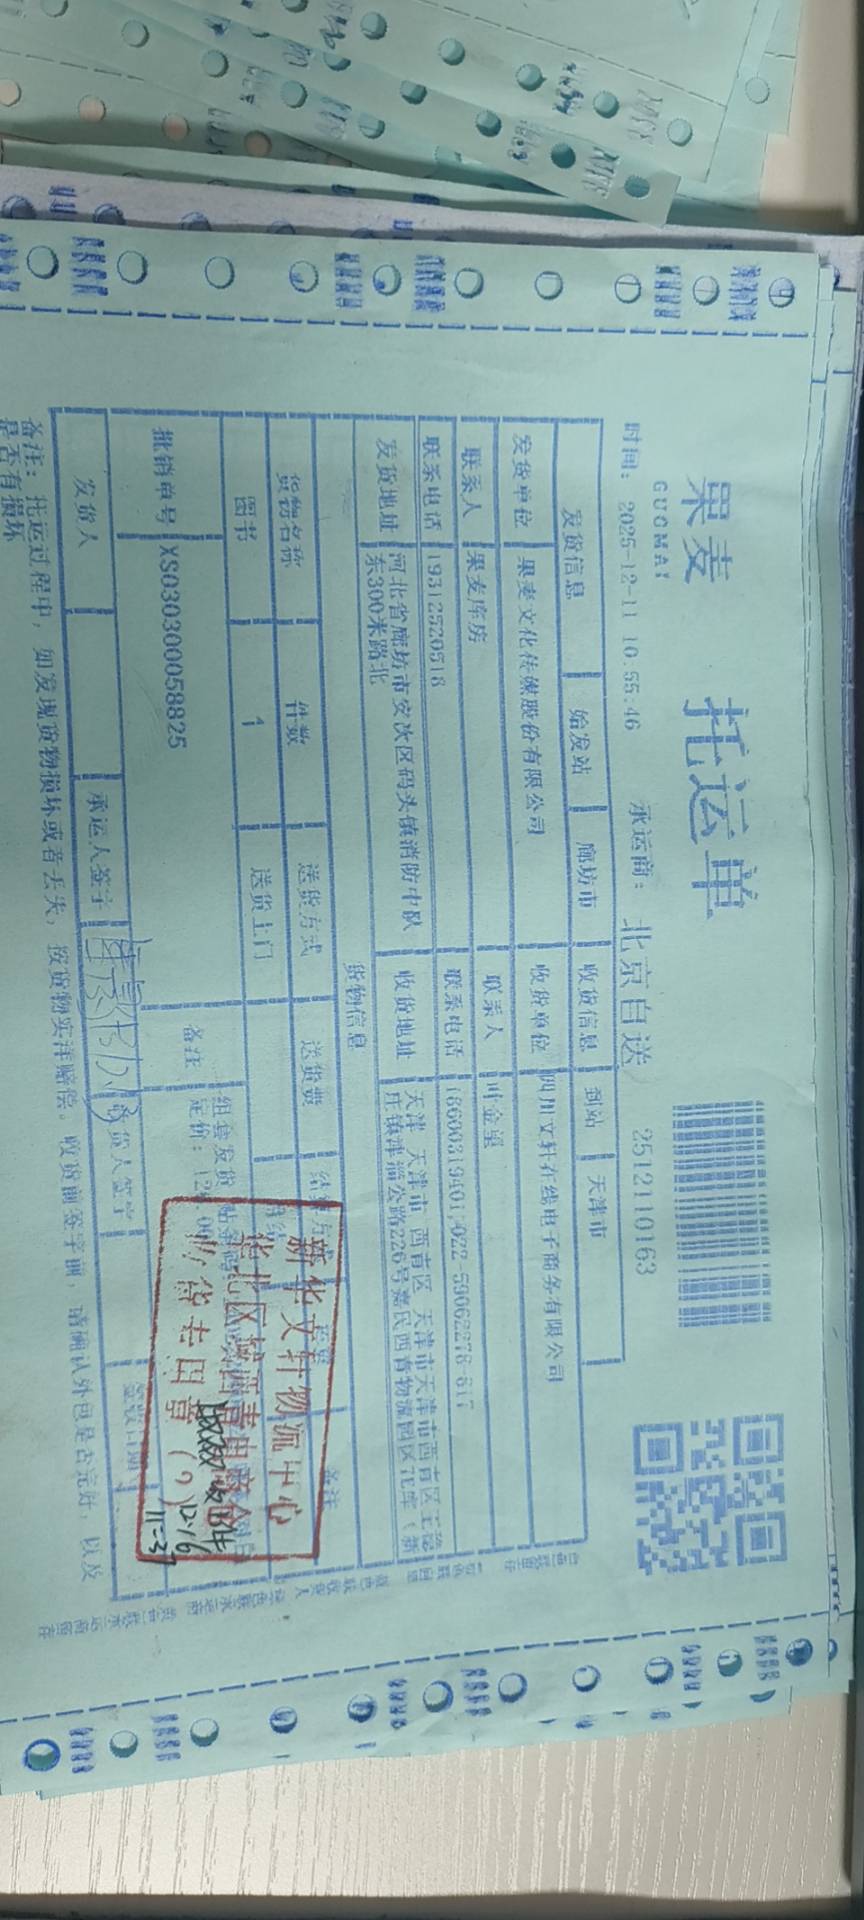 果麦
GUOMAI
托运单
2512110163
时间: 2025-12-11 10:55:46
承运商: 北京自送
发货信息 始发站 廊坊市 收货信息 到站 天津市
发货单位 果麦文化传媒股份有限公司 收货单位 四川文轩在线电子商务有限公司
联系人 果麦库房 联系人 叶金梁
联系电话 19312520518 联系电话 18600319401,022-59062278-817
发货地址 河北省廊坊市安次区码头镇消防中队
东300米路北
收货地址 天津 天津市 西青区 天津市天津市西青区王稳
庄镇津淄公路226号嘉民西青物流园区 库(新
货物信息
货物名称 件数 送货方式 送货费 结算方式 备注
图书 1 送货上门
批销单号 XS030300058825 备注 组套发货
定价:
发货人 承运人签字 收货人签字 签收日期
备注: 托运过程中, 如发现货物损坏或者丢失, 按货物实洋赔偿。收货前签字前, 请确认外包是否完好, 以及
是否有损坏
新华文轩物流中心
华北区域西青电商仓
收货专用章(7)
12.16
11:37